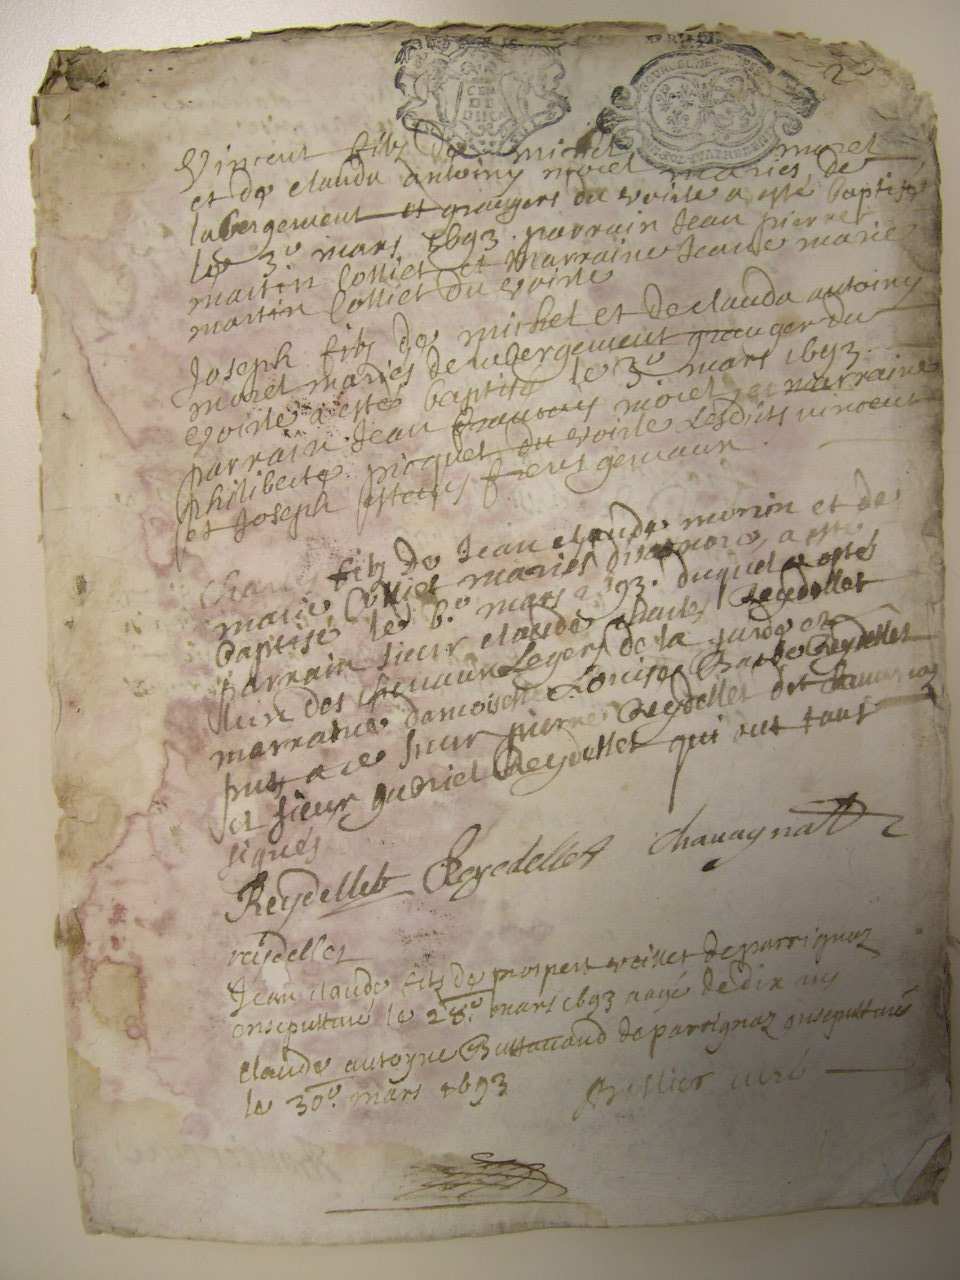 2
Vincent fitz de michel morel
et de clauda antoiny morel maries de
labergement et grangers du voirle a esté baptisé
le 3e mars 1693. parrain Jean pierre
martin Colliet et marraine Jeane marie
martin Colliet du voirle
Joseph fitz de michel et de clauda antoiny
morel maries de labergement granger du
voirle a esté baptisé le 3e mars 1693.
parrain Jean morel et marraine
philiberte picquet du voirle Lesdits vincent
et Joseph frères gemeaux
Charles fitz de Jean claude morin et de
marie Colliet maries a esté
baptisé le 6e mars 1693. duquel a esté
parrain sieur claude charles Reydellet
lun des chevaux Legers de la garde et
marraine damoiselle Louise Barbe Reydellet
sieur pierre Reydellet dit Chavagnat
et sieur gabriel Reydellet qui ont tous
signés
Reydellet Reydellet Chavagnatt
reidellet
Jean claude fitz de prospert veillet de parrignaz
ensepulturé le 28e mars 1693 agé de dix ans
claude antoyne Buttavand de parrignaz ensepulturé
le 30e mars 1693
curé